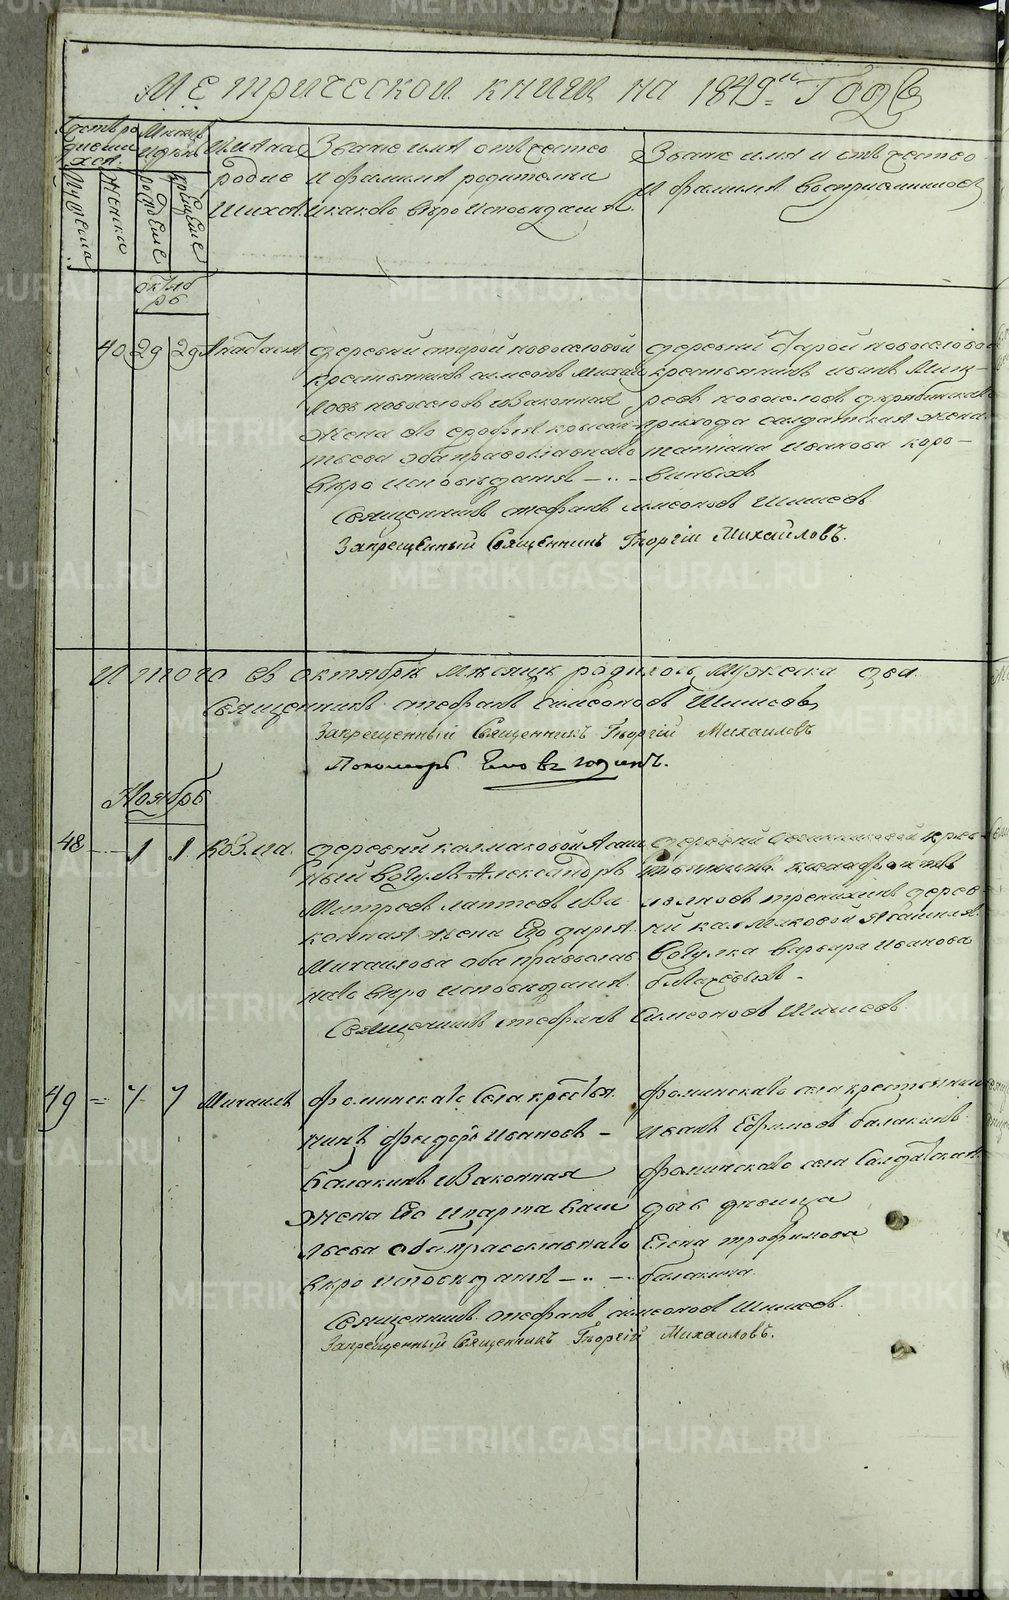 Метрической книги на 1849й Годъ
Щетъ ро
дивши
хся
Мужеска
Женска
Месяцъ
И день
рожденiе
крещенiе
Имена
родив
шихся
Званiе имя отечество
И фамилiя родителей
И какой веры Исповеданiя
Званiе имя и отечество
И фамилiя восприемниковъ
октяб
рь
40 29 29 Анастасiя
деревни старой новоселовой
крестьянинъ симеонъ Михаи
ловъ новоселовъ изаконная
жена его софья крысан
тьева оба православнаго
веры исповеданiя
деревни старой новоселовой
крестьянинъ иванъ Мит
рева новоселовъ
прихода салдатская жена
татiана Иванова коро
виныхъ
Священникъ стефанъ симеоновъ Шишевъ
Запрещенный Священникъ Георгiй Михайловъ.
Итого въ октябре Месяце родилось Мужеска два
Священникъ стефанъ симеоновъ Шишевъ
Запрещенный Священникъ Георгiй Михаиловъ
Пономарь
Ноябрь
48 1 1 Козма
деревни калмаковой Ясаш
ный вогулъ Александръ
Митревъ лаптевъ иза
конная жена Его дарья
Михаилова оба православ
наго веры исповеданiя
деревни кресть
янинъ
деревни калмаковой Ясашнаго
вогулка варвара иванова
Священникъ стефанъ Симеоновъ Шишевъ
49 = 7 7 Михаилъ
фоминскаго села кресть
нинъ феодоръ Ивановъ
балакинъ изаконная
жена Его Марфа васи
льева оба православнаго
веры исповеданiя
фоминскаго села крестьянинъ
иванъ Ефимовъ балакинъ
фоминскаго села Салдатская
дочь девица
Елена трофимова
балакина
Священникъ стефанъ симеоновъ Шишевъ.
Запрещенный Священникъ Георгiй Михаиловъ.
METRIKI.GASO-URAL.RU